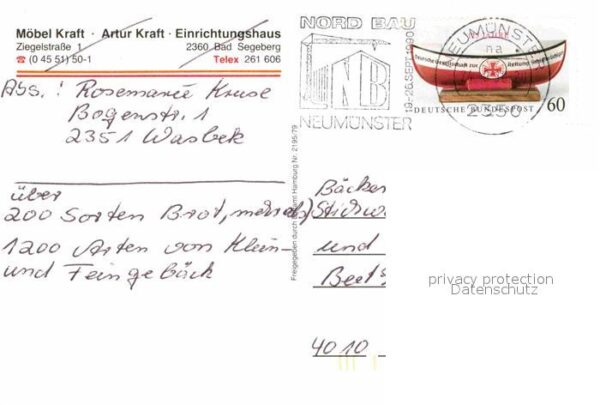 Möbel Kraft · Artur Kraft · Einrichtungshaus
Ziegelstraße 1 2360 Bad Segeberg
☎ (0 45 51) 50-1 Telex 261 606
Abs.: Rosemarie Kruse
Bogenstr. 1
2351 Wasbek
über
200 Sorten Brot,
1200 Arten von Klein-
und Feingebäck
Freigegeben durch Hamburg Nr. 2195/79
NORD BAU
NB
NEUMÜNSTER
19.-26. SEPT. 1990
NEUMÜNSTER
na
2350
Deutsche Gesellschaft zur Rettung Schiffbrüchiger
DEUTSCHE BUNDESPOST 60
Bäcker
und
4010
privacy protection
Datenschutz